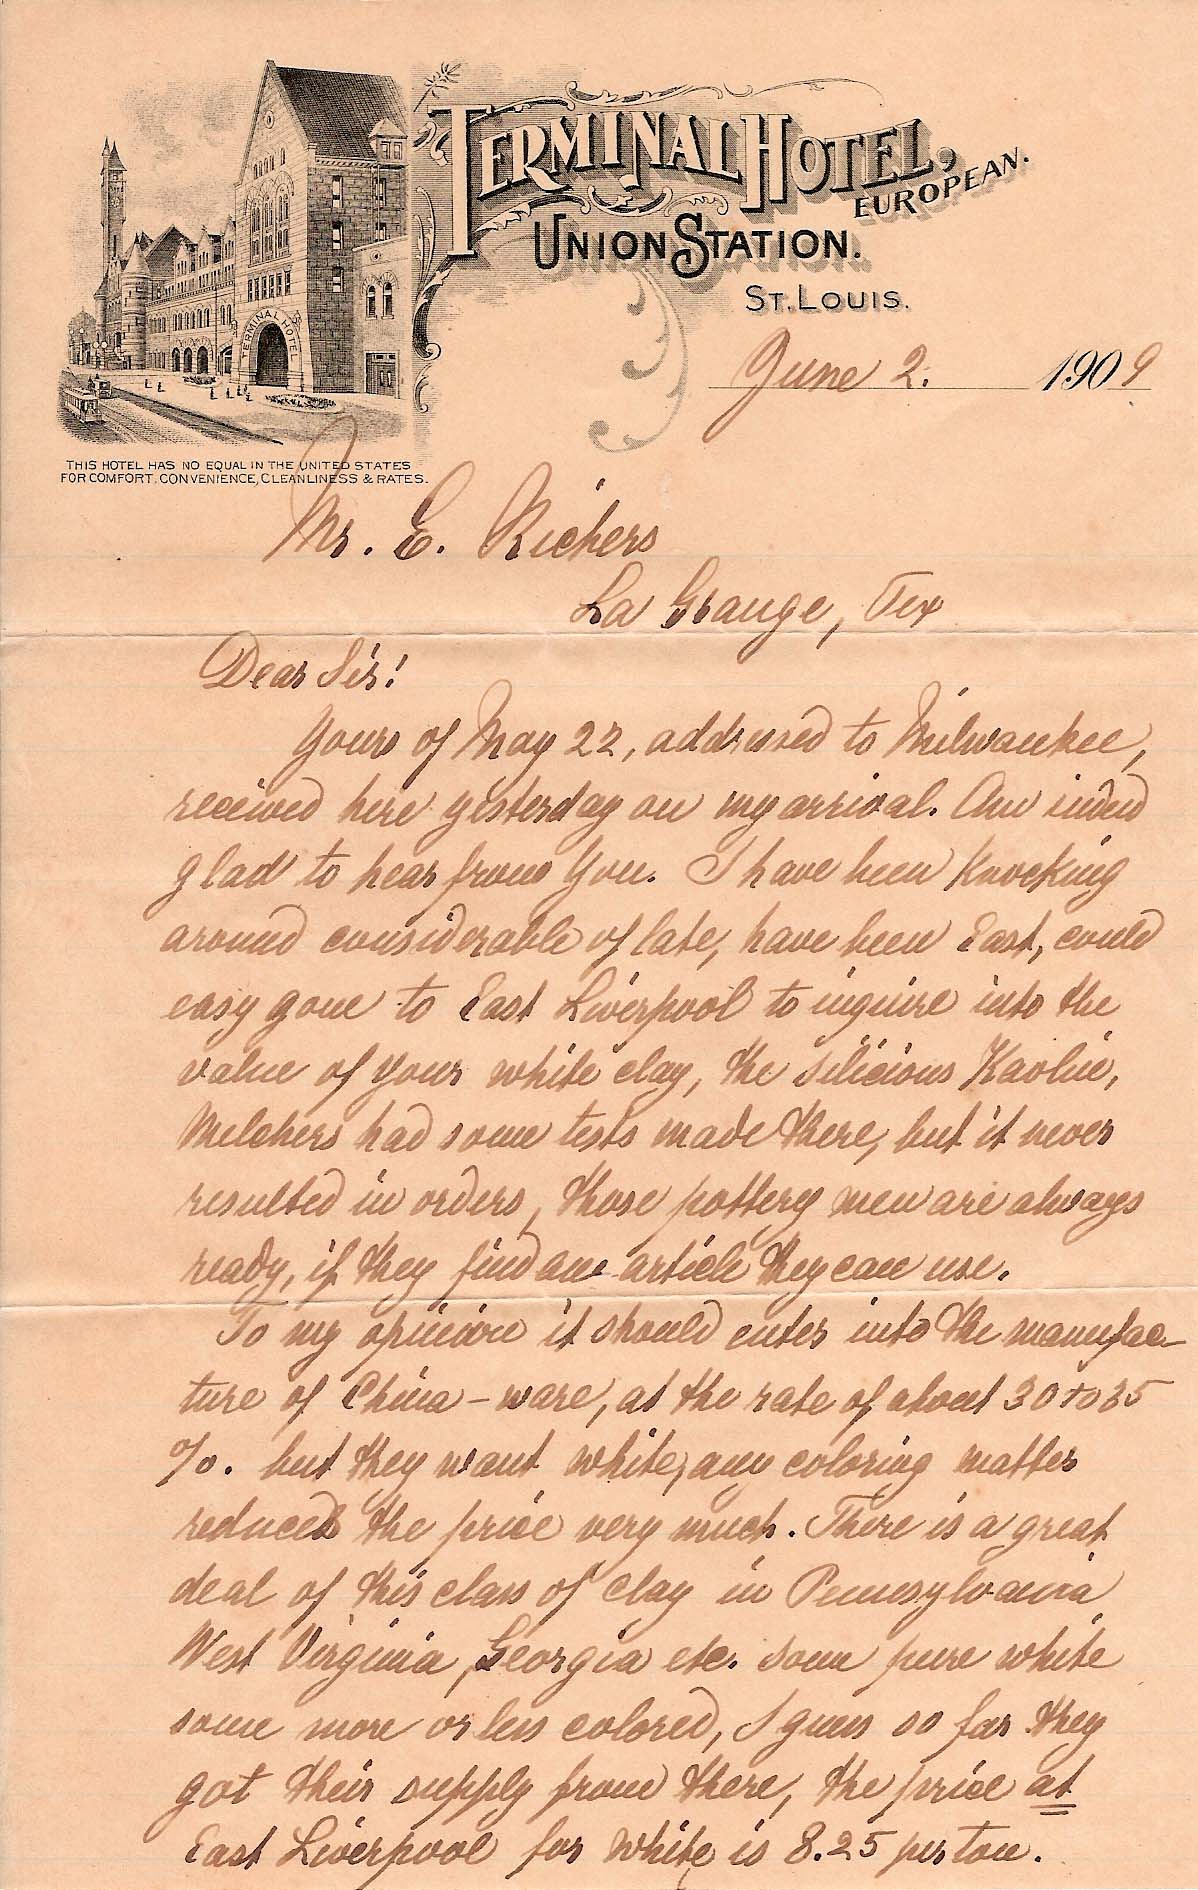 TERMINAL HOTEL,
EUROPEAN.
UNION STATION.
ST. LOUIS.
TERMINAL HOTEL
June 2. 1909
THIS HOTEL HAS NO EQUAL IN THE UNITED STATES
FOR COMFORT, CONVENIENCE, CLEANLINESS & RATES.
Mr. E. Richers
La Grange, Tex
Dear Sir!
Yours of May 22, addressed to Milwaukee,
received here yesterday on my arrival. Am indeed
glad to hear from You. I have been Knocking
around considerable of late, have been East, could
easy gone to East Liverpool to inquire into the
value of your white clay, the silicious Kaolin,
Melchers had some tests made there, but it never
resulted in orders, those pottery men are always
ready, if they find an article they can use.
To my opinion it should enter into the manufac-
ture of China-ware, at the rate of about 30 to 35
%. but they want white, any coloring matter
reduces the price very much. There is a great
deal of this class of clay in Pennsylvania
West Virginia, Georgia etc. some pure white
some more or less colored, I guess so far they
got their supply from there, the price at
East Liverpool for White is 8.25 per ton.